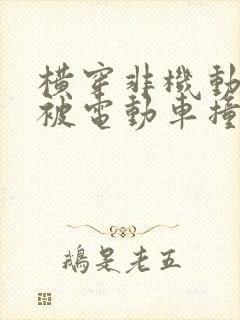 橫穿非機動
被電動車撞
鵝是老五